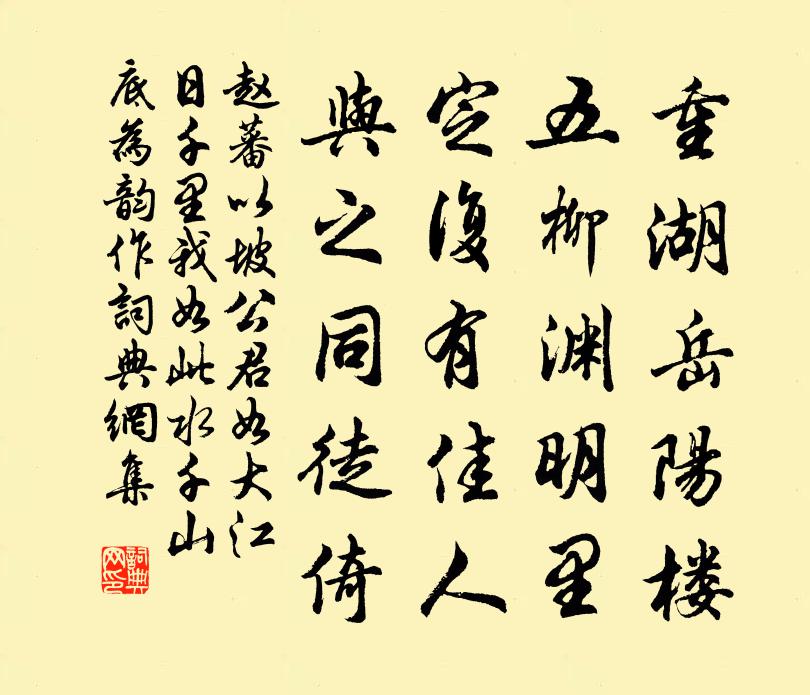 重湖岳陽楼
五柳渊明里
定復有佳人
與之同徒倚
赵蕃以坡公君如大江
日千里我如此水千山
底為韵作詞典網集
詞典网印